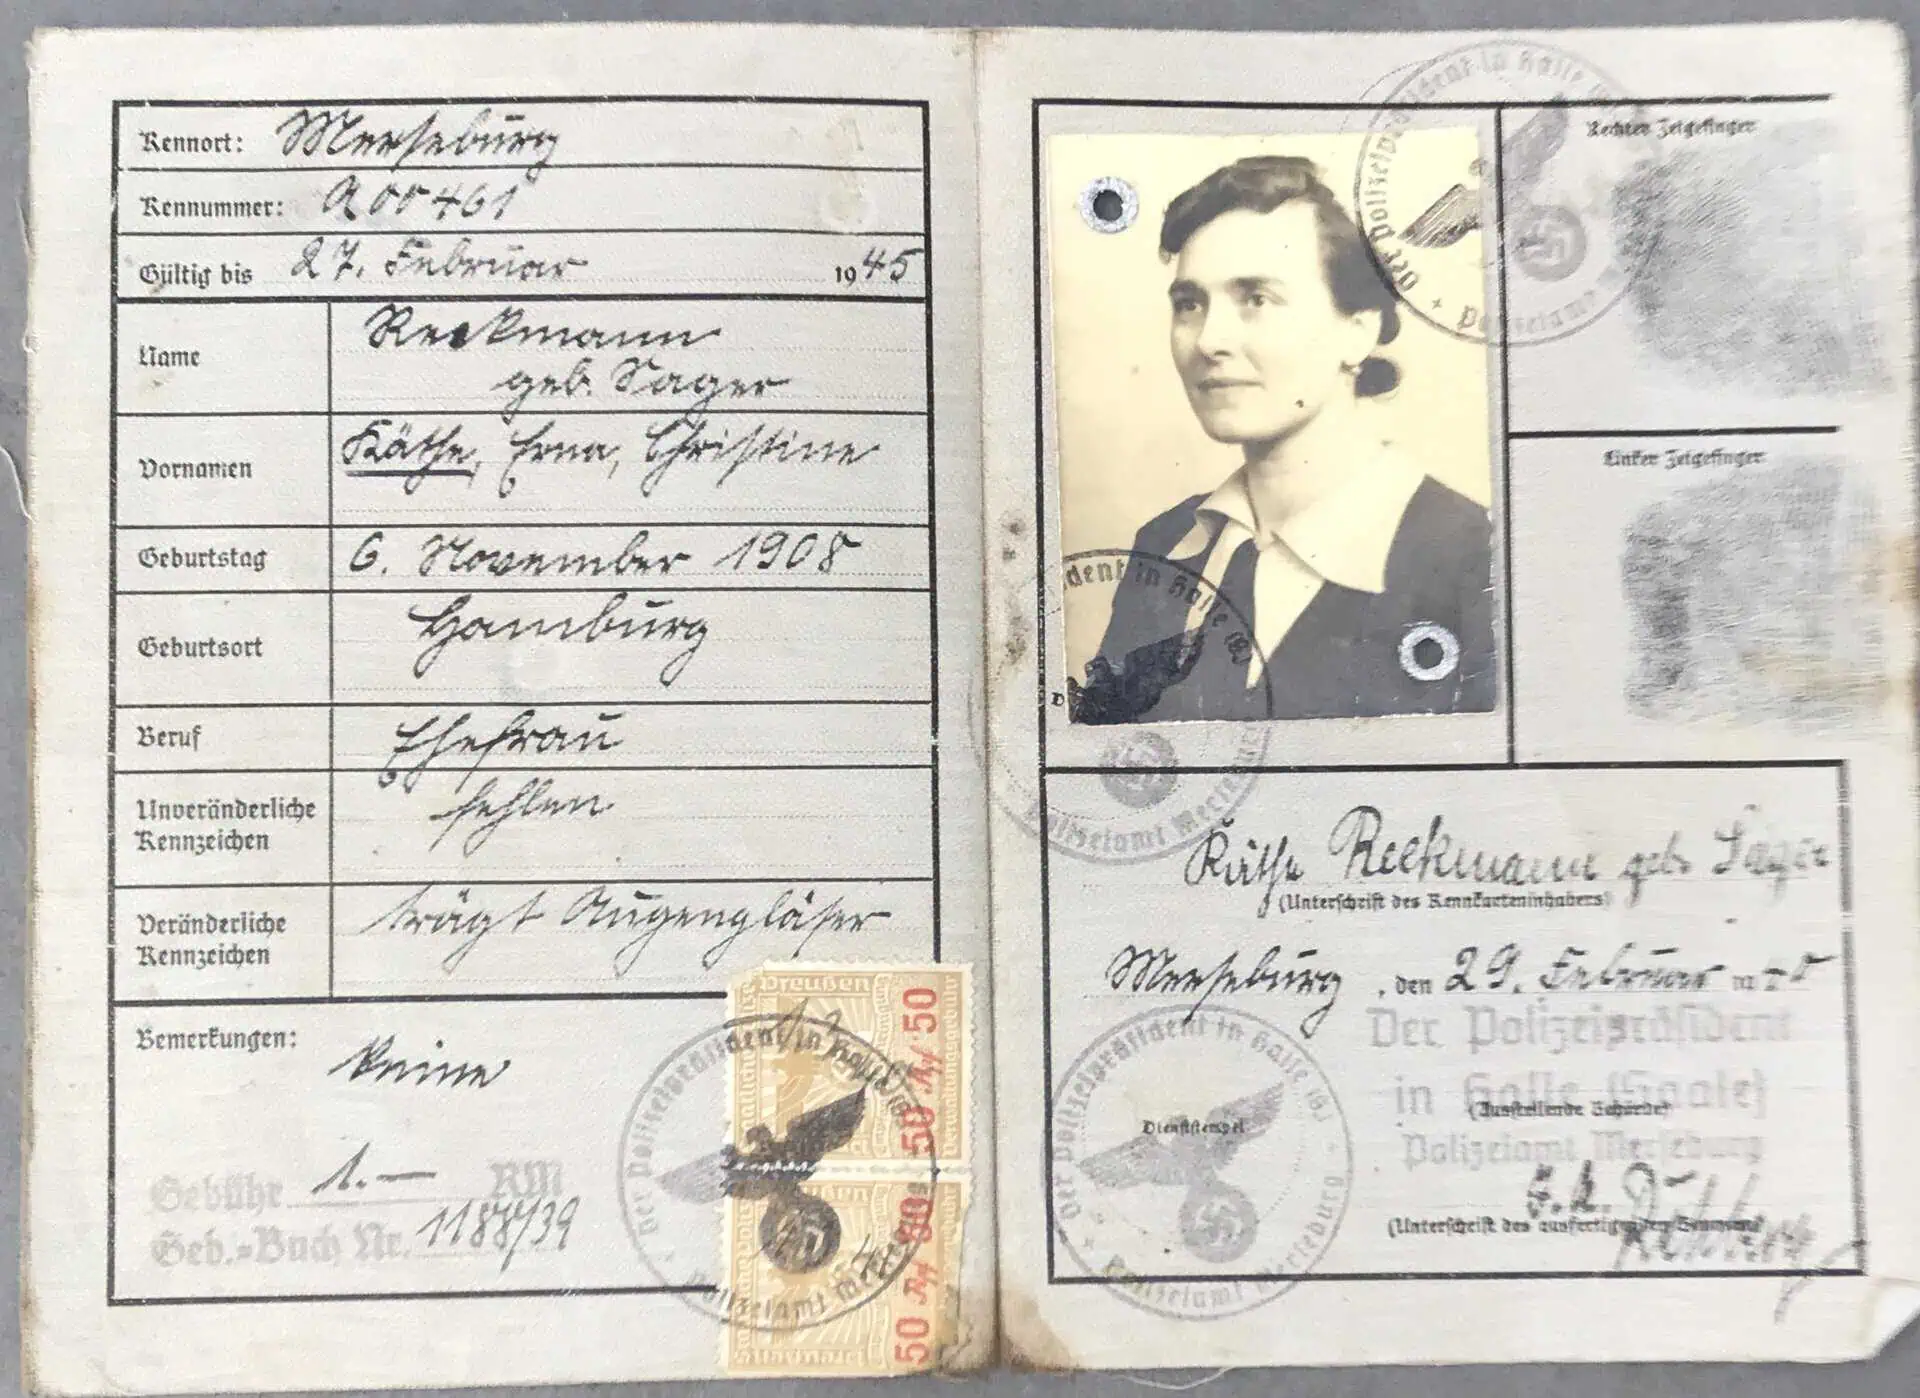 Kennort: Merseburg
Kennummer: A 00461
Gültig bis 27. Februar 1945
Name Reekmann
geb. Sager
Vornamen Käthe, Erna, Christine
Geburtstag 6. November 1908
Geburtsort Hamburg
Beruf Ehefrau
Unveränderliche Kennzeichen fehlen
Veränderliche Kennzeichen trägt Augengläser
Bemerkungen: keine
Gebühr 1.— RM
Geb.-Buch Nr. 1188/39
Preußen
50 Rpf 50
Verwaltungsgebühr
50 Rpf 50
Der Polizeipräsident in Halle (S)
Polizeiamt Merseburg
Rechter Zeigefinger
Linker Zeigefinger
Der Polizeipräsident in Halle (S)
Polizeiamt
Polizeiamt Merseburg
Käthe Reekmann geb. Sager
(Unterschrift des Kennkarteninhabers)
Merseburg, den 29. Februar 1940
Der Polizeipräsident
in Halle (Saale)
(Ausstellende Behörde)
Polizeiamt Merseburg
Dienststempel
Der Polizeipräsident in Halle (S)
Polizeiamt Merseburg
(Unterschrift des ausfertigenden Beamten)